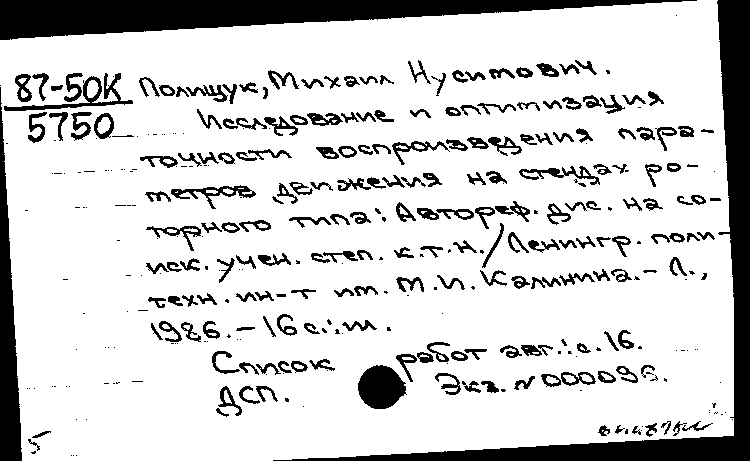 87-50К
5750
Полищук, Михаил Нусимович.
Исследование и оптимизация
точности воспроизведения пара-
метров движения на стендах ро-
торного типа: Автореф. дис. на со-
иск. учен. степ. к.т.н. / Ленингр. поли-
техн. ин-т им. М.И. Калинина. - Л.,
1986. - 16 с.: ил.
Список работ авт.: с. 16.
ДСП. Экз. N 000096.
5